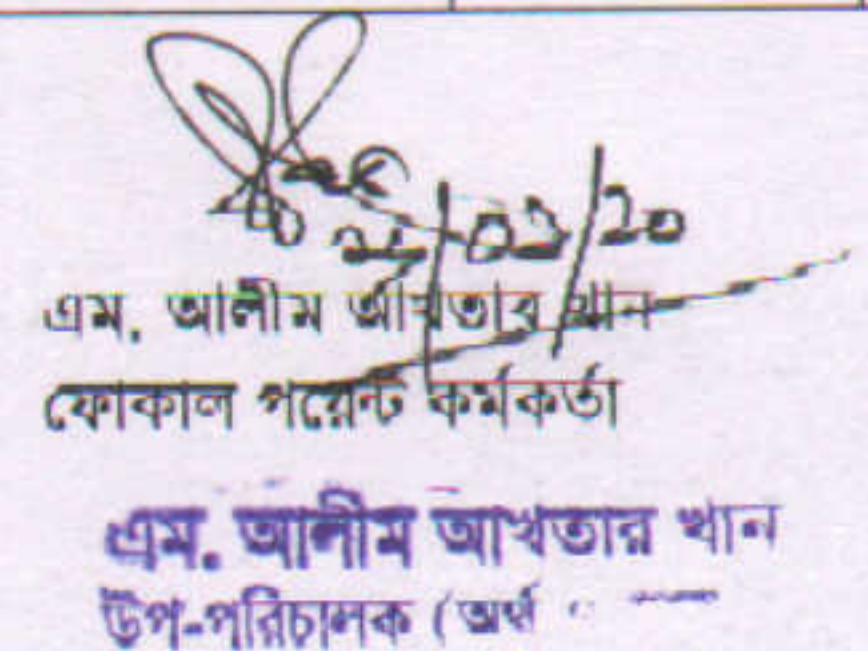 এম. আলীম আখতার খান
ফোকাল পয়েন্ট কর্মকর্তা
এম. আলীম আখতার খান
উপ-পরিচালক (অর্থ